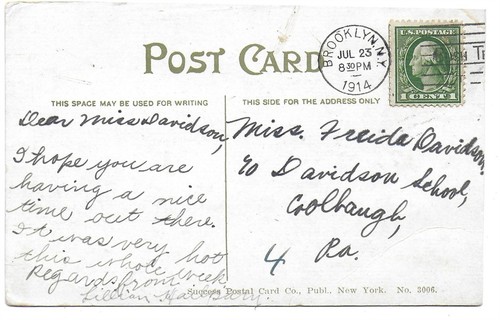 POST CARD
BROOKLYN, N.Y.
JUL 23
8 30 PM
1914
U.S. POSTAGE
1 CENT 1
THIS SPACE MAY BE USED FOR WRITING
THIS SIDE FOR THE ADDRESS ONLY
Dear Miss Davidson,
I hope you are
having a nice
time out there.
It was very hot
this whole week
Regards from
Lillian
Miss. Freida Davidson,
c/o Davidson School,
Coolbaugh,
Pa.
4
Success Postal Card Co., Publ., New York. No. 3006.